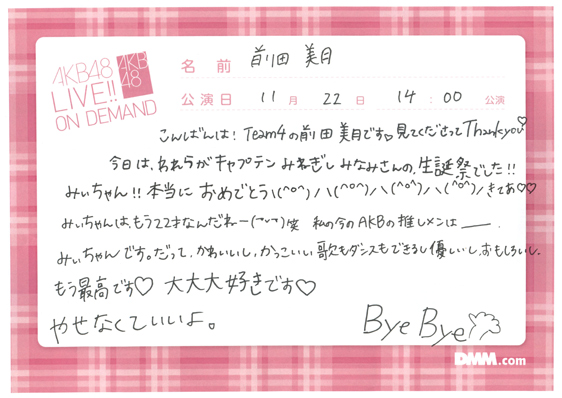 AKB48
LIVE!!
ON DEMAND
AKB
48
名前 前田 美月
公演日 11月 22日 14:00 公演
こんばんは! Team4の前田美月です♡見てくださってThankyou♡
今日は、われらがキャプテン みねぎし みなみさんの、生誕祭でした!!
みぃちゃん!!本当に おめでとう\(^o^)/\(^o^)/\(^o^)/\(^o^)/
みぃちゃんは、もう22才なんだねー 笑 私の今のAKBの推しメンは――.
みぃちゃんです。だって、かわいいし、かっこいい 歌もダンスもできるし優しいし、おもしろいし、
もう最高です♡ 大大大好きです♡
やせなくていいよ。 Bye Bye
DMM.com